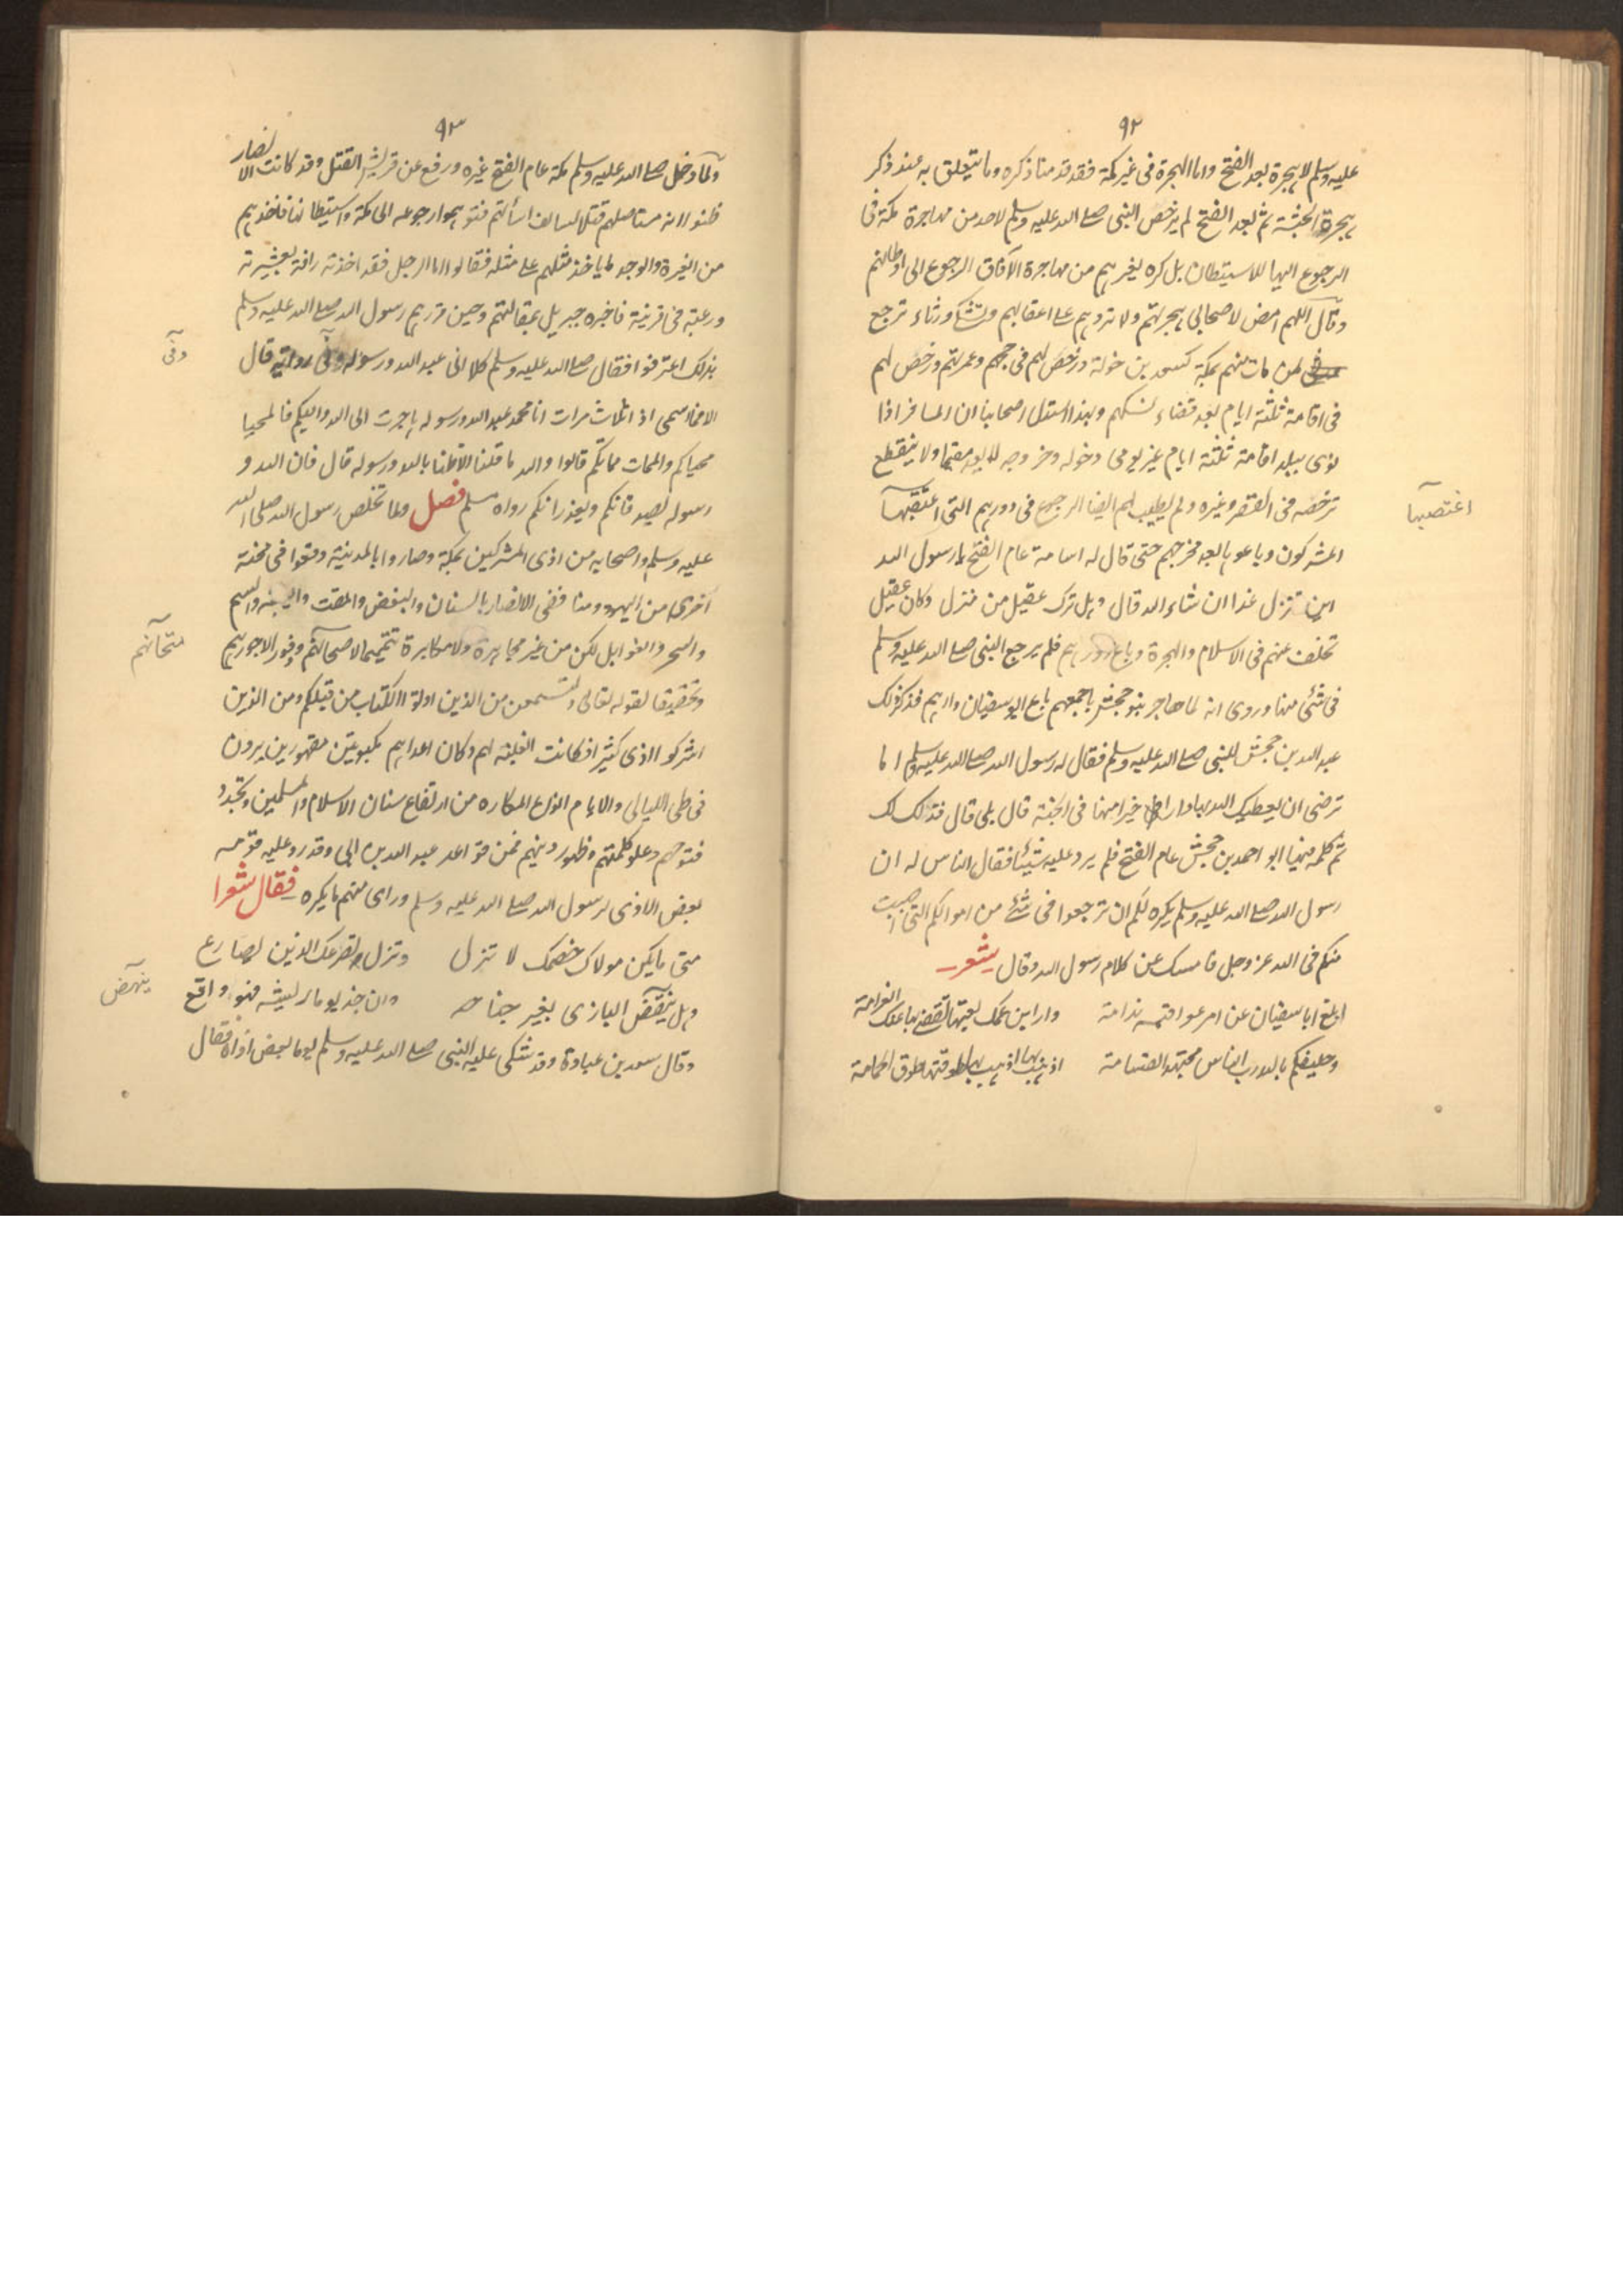 ٩٢
عليه وسلم لا هجرة بعد الفتح واما الهجرة فى غير مكة فقد قدمنا ذكره وما يتعلق به عند ذكر
هجرة الحبشة ثم بعد الفتح لم يرخص النبى صلے الله عليه وسلم لاحد من مهاجرة مكة فى
الرجوع اليها للاستيطان بل كره لغيرهم من مهاجرة الآفاق الرجوع الى اوطانهم
وقال اللهم امض لاصحابى هجرتهم ولا تردهم علے اعقابهم وتشكى ورثاء ترجع
لمن مات منهم بمكة كسعد بن خولة ورخص لهم فى حجهم وعمرتهم ورخص لهم
فى اقامة ثلثة ايام بعد قضاء نسكهم وبهذا استدل اصحابنا ان المسافر اذا
نوى ببلد اقامة ثلثة ايام غير يومى دخوله وخروجه لا يعد مقيما ولا ينقطع
ترخصه فى القصر وغيره ولم يطيب لهم ايضا الرجوع فى دورهم التى اغتصبها
اغتصبها
المشركون وباعوها بعد مخرجهم حتى قال له اسامة عام الفتح يا رسول الله
اين تنزل غدا ان شاء الله قال وهل ترك عقيل من منزل وكان عقيل
تخلف عنهم فى الاسلام والهجرة وباع دورهم فلم يرجع النبى صلے الله عليه وسلم
فى شئى منها وروى انه لما هاجر بنو جحش باجمعهم باع ابو سفيان دارهم فذكر ذلك
عبد الله بن جحش للنبى صلے الله عليه وسلم فقال له رسول الله صلے الله عليه وسلم اما
ترضى ان يعطيك الله بها دارا خيرا منها فى الجنة قال بلى قال فذلك لك
ثم كلمه فيها ابو احمد بن جحش عام الفتح فلم يرد عليه شيئا فقال الناس له ان
رسول الله صلے الله عليه وسلم يكره لكم ان ترجعوا فى شئے من اموالكم التى اصيبت
منكم فى الله عز وجل فامسك عن كلام رسول الله وقال شعر
ابلغ ابا سفيان عن امر عواقبه ندامة دار ابن عمك بعتها تقضى بها عنك الغرامة
وحليفكم بالله رب الناس مجتهد القسامة اذهب بها اذهب بها طوقتها طوق الحمامة
٩٣
ولما دخل صلے الله عليه وسلم مكة عام الفتح غيره ورفع عن قريش القتل وقد كانت الانصار
ظنوا انه مستاصلهم قتلا لسالف اساأتهم فتوهموا رجوعه الى مكة واستيطانها فاخذهم
من الغيرة والوجد ما ياخذ مثلهم علے مثله فقالوا اما الرجل فقد اخذته رافة بعشيرته
ورغبة فى قريته فاخبره جبريل بمقالتهم وحين قررهم رسول الله صلے الله عليه وسلم
بذلك اعترفوا فقال صلے الله عليه وسلم كلا انى عبد الله ورسوله وفى رواية قال
وفى
الا فما اسمى اذا ثلاث مرات انا محمد عبد الله ورسوله هاجرت الى الله واليكم فالمحيا
محياكم والممات مماتكم قالوا والله ما قلنا الا ظنا بالله ورسوله قال فان الله و
رسوله يصدقانكم ويعذرانكم رواه مسلم فصل ولما تخلص رسول الله صلى الله
عليه وسلم واصحابه من اذى المشركين بمكة وصاروا بالمدينة وقعوا فى محنة
اخرى من اليهود ومنافقى الانصار بالسنان والبغض والمقت والسم
والسحر والغوايل لكن من غير مجاهرة ولا مكابرة تتميما لاصحانهم وفور الاجورهم
متحانهم
وتحقيقا لقوله تعالى ولتسمعن من الذين اوتوا الكتاب من قبلكم ومن الذين
اشركوا اذى كثيرا فكانت الغلبة لهم وكان اعداهم مكبوتين مقهورين يرون
فى طى الليالى والايام انواع المكاره من ارتفاع سنان الاسلام والمسلمين وتجدد
فتوحهم وعلو كلمتهم وظهور دينهم فمن قواعد عبد الله بن ابى وقد رد عليه قومه
بعض الاذى لرسول الله صلے الله عليه وسلم وراى منهم ما يكره فقال شعرا
متى ما يكن مولاك خصمك لا تزل وتزل ويصرعك الذين تصارع
وهل ينهض البازى بغير جناحه وان جذ يوما ريشه فهو واقع
ينهض
وقال سعد بن عبادة وقد شكى عليه النبى صلے الله عليه وسلم يوما بعض اذاه فقال